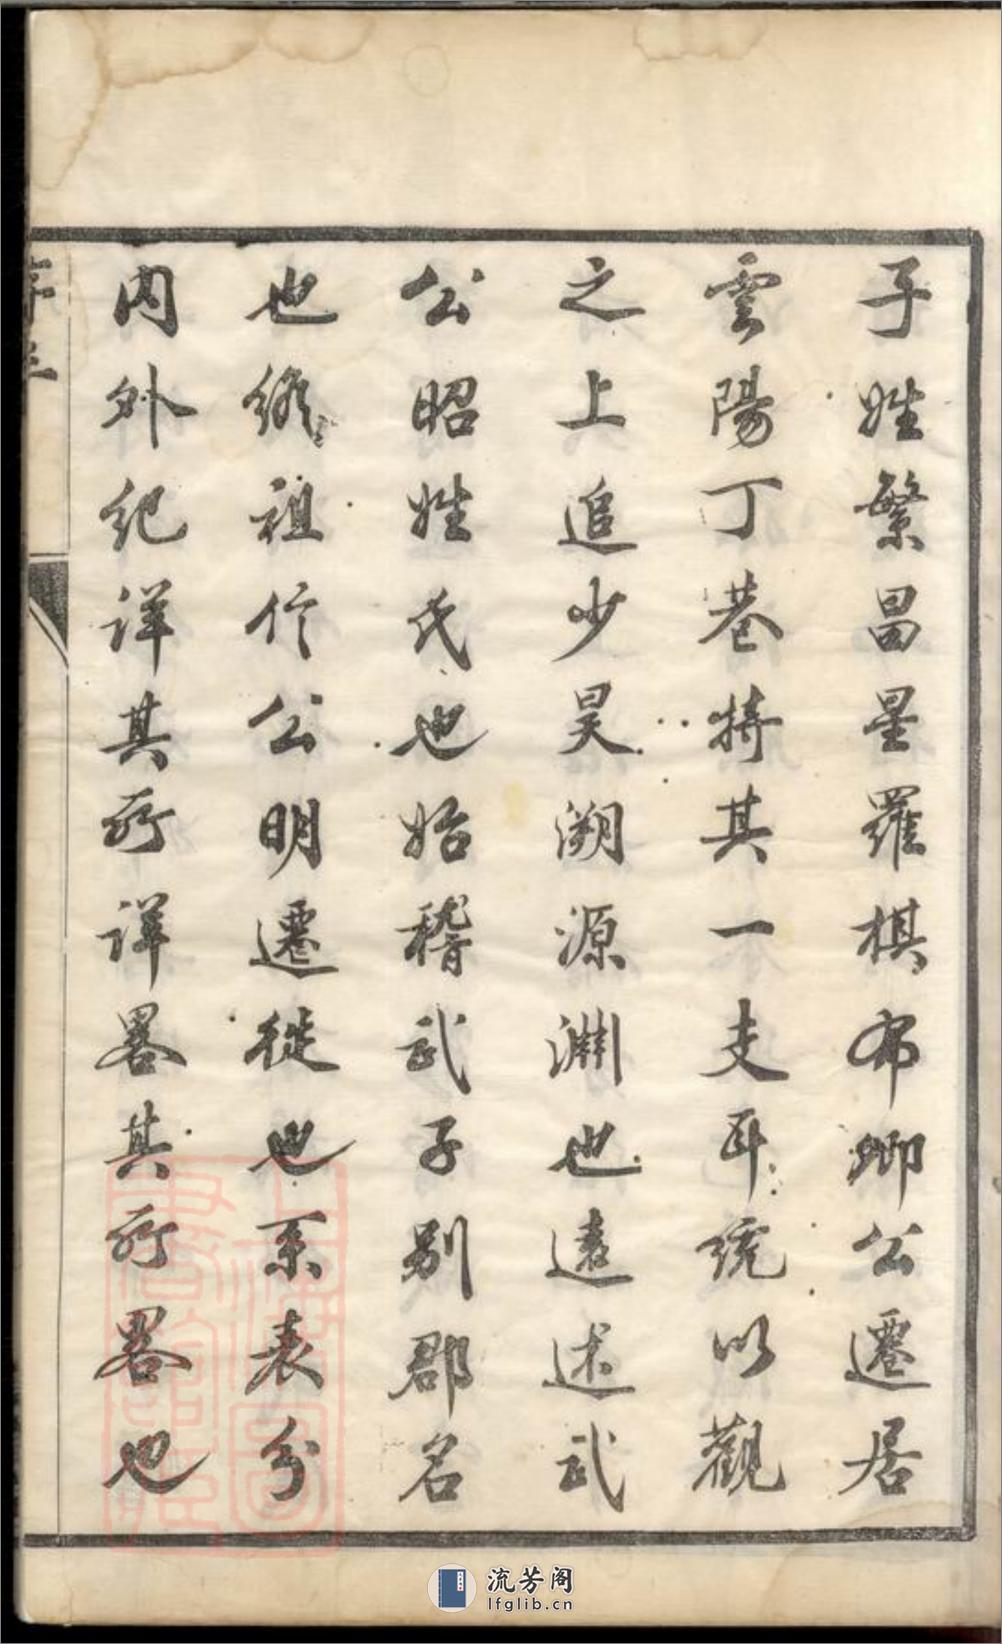 子姓繁昌星羅棋布卿公遷居
雲陽丁巷特其一支耳統以觀
之上追少昊溯源淵也遠述武
公昭姓氏也始稽武子別郡名
也繼祖伫公明遷徙也系表分
内外紀詳其所詳畧其所畧也
流芳阁
lfglib.cn